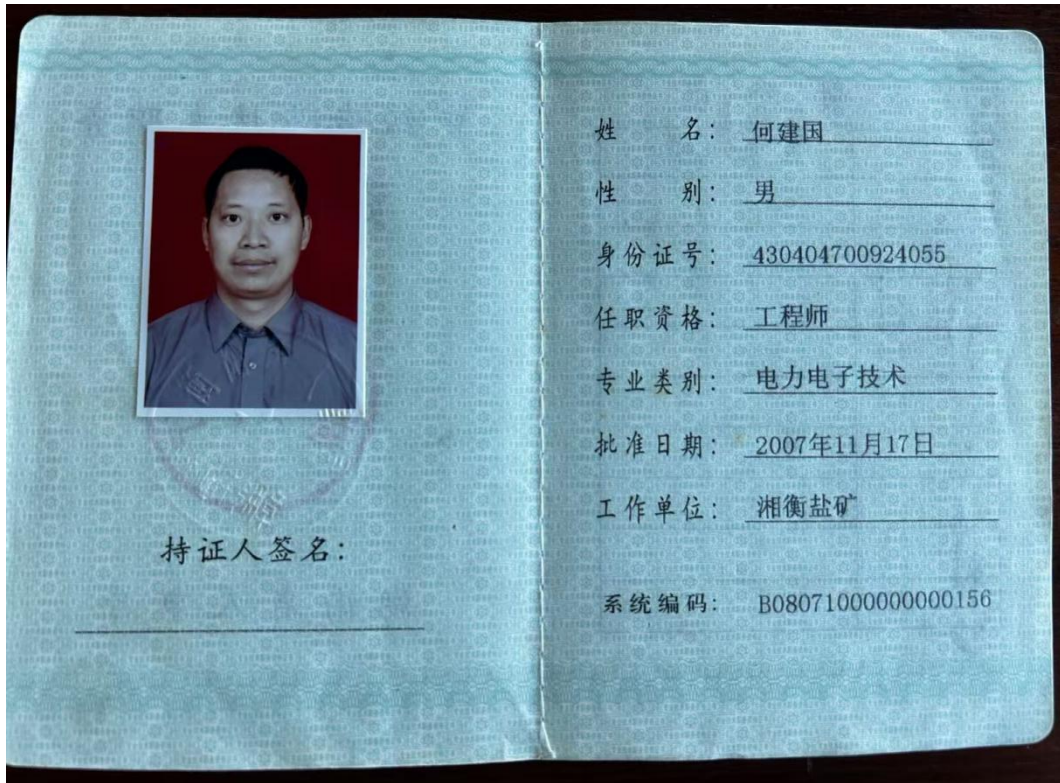 持证人签名：
姓 名： 何建国
性 别： 男
身份证号： 430404700924055
任职资格： 工程师
专业类别： 电力电子技术
批准日期： 2007年11月17日
工作单位： 湘衡盐矿
系统编码： B08071000000000156